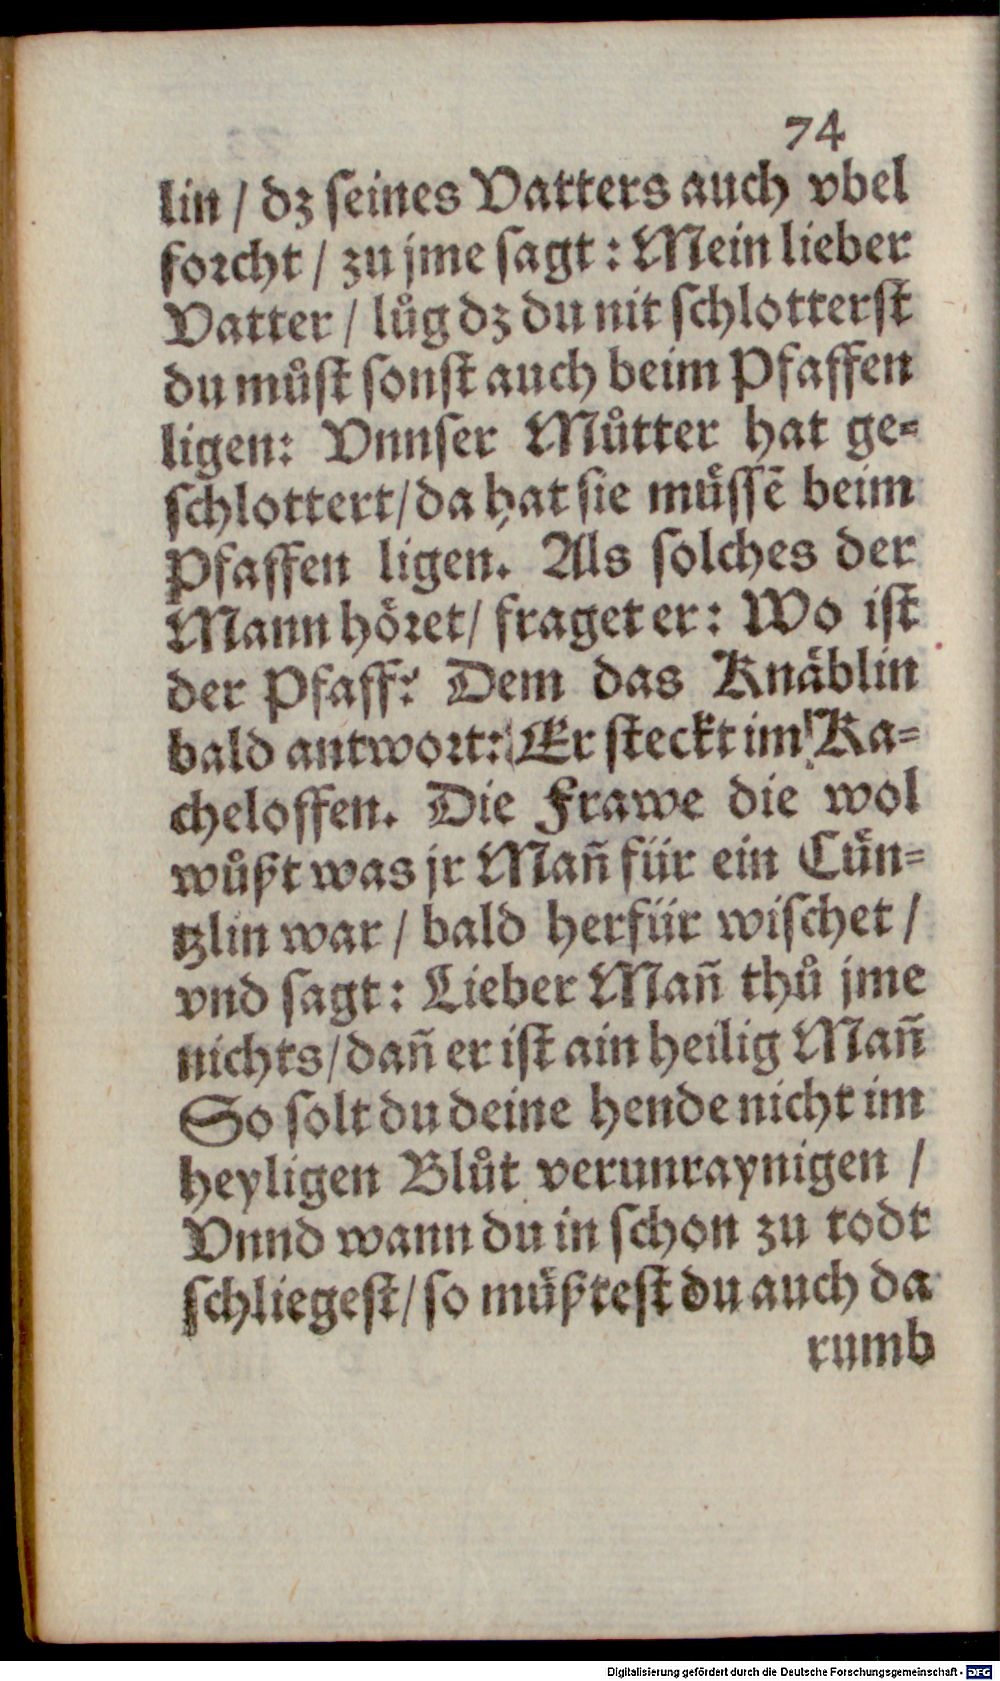 74
lin / dz ſeines Vatters auch vbel
forcht / zu jme ſagt : Mein lieber
Vatter / luͦg dz du nit ſchlotterſt
du muͦſt ſonſt auch beim Pfaffen
ligen: Vnnſer Muͦtter hat ge⸗
ſchlottert/ da hat ſie muͤſſē beim
Pfaffen ligen. Als ſolches der
Mann hoͤret/ fraget er: Wo iſt
der Pfaff? Dem das Knaͤblin
bald antwort: Er ſteckt im Ka⸗
cheloffen. Die Frawe die wol
wuͦßt was jr Man̄ fuͤr ein Cuͤn⸗
tzlin war / bald herfuͤr wiſchet /
vnd ſagt : Lieber Man̄ thuͦ jme
nichts/ dan̄ er iſt ain heilig Man̄
So ſolt du deine hende nicht im
heyligen Bluͦt verunraynigen /
Vnnd wann du in ſchon zu todt
ſchliegeſt/ ſo muͤßteſt du auch da
rumb
Digitalisierung gefördert durch die Deutsche Forschungsgemeinschaft - DFG